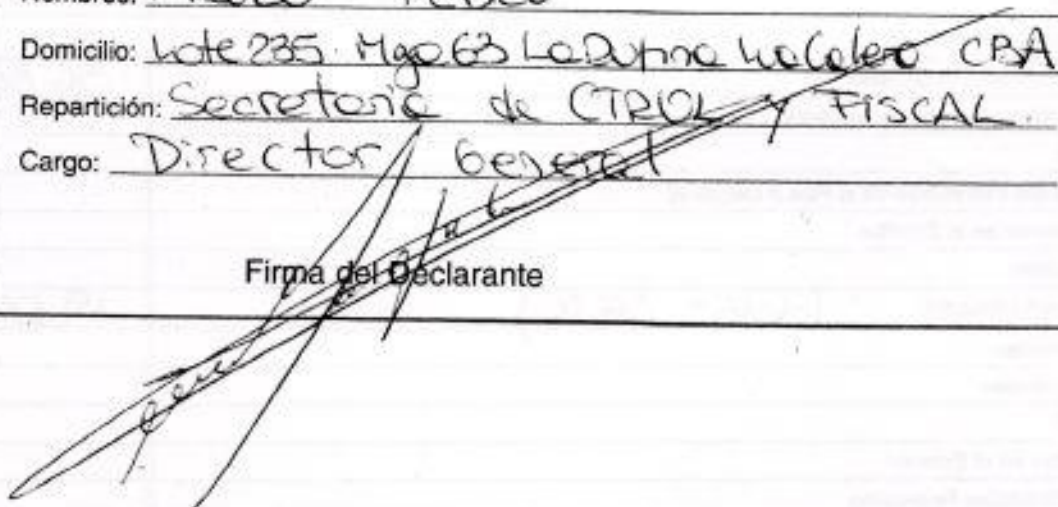 Domicilio: Lote 235 Mza 63 La Calera CBA
Repartición: Secretaria de CTROL y FISCAL.
Cargo: Director General
Firma del Declarante